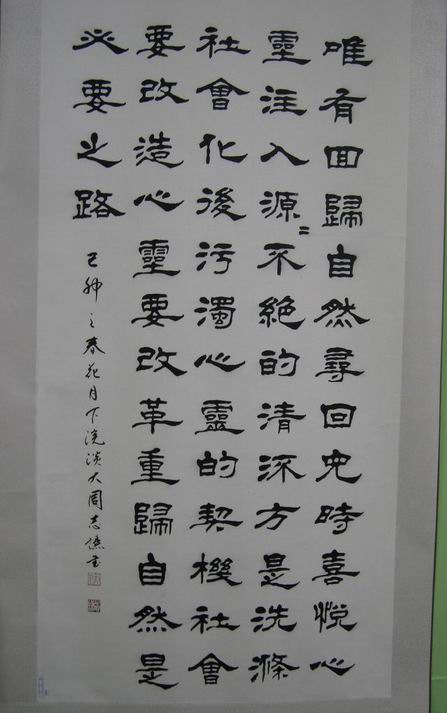 唯有回歸自然尋回兒時喜悅心
靈注入源〻不絕的清流方是洗滌
社會化後污濁心靈的契機社會
要改造心靈要改革重歸自然是
必要之路
己卯之春花月下浣淡大周志書